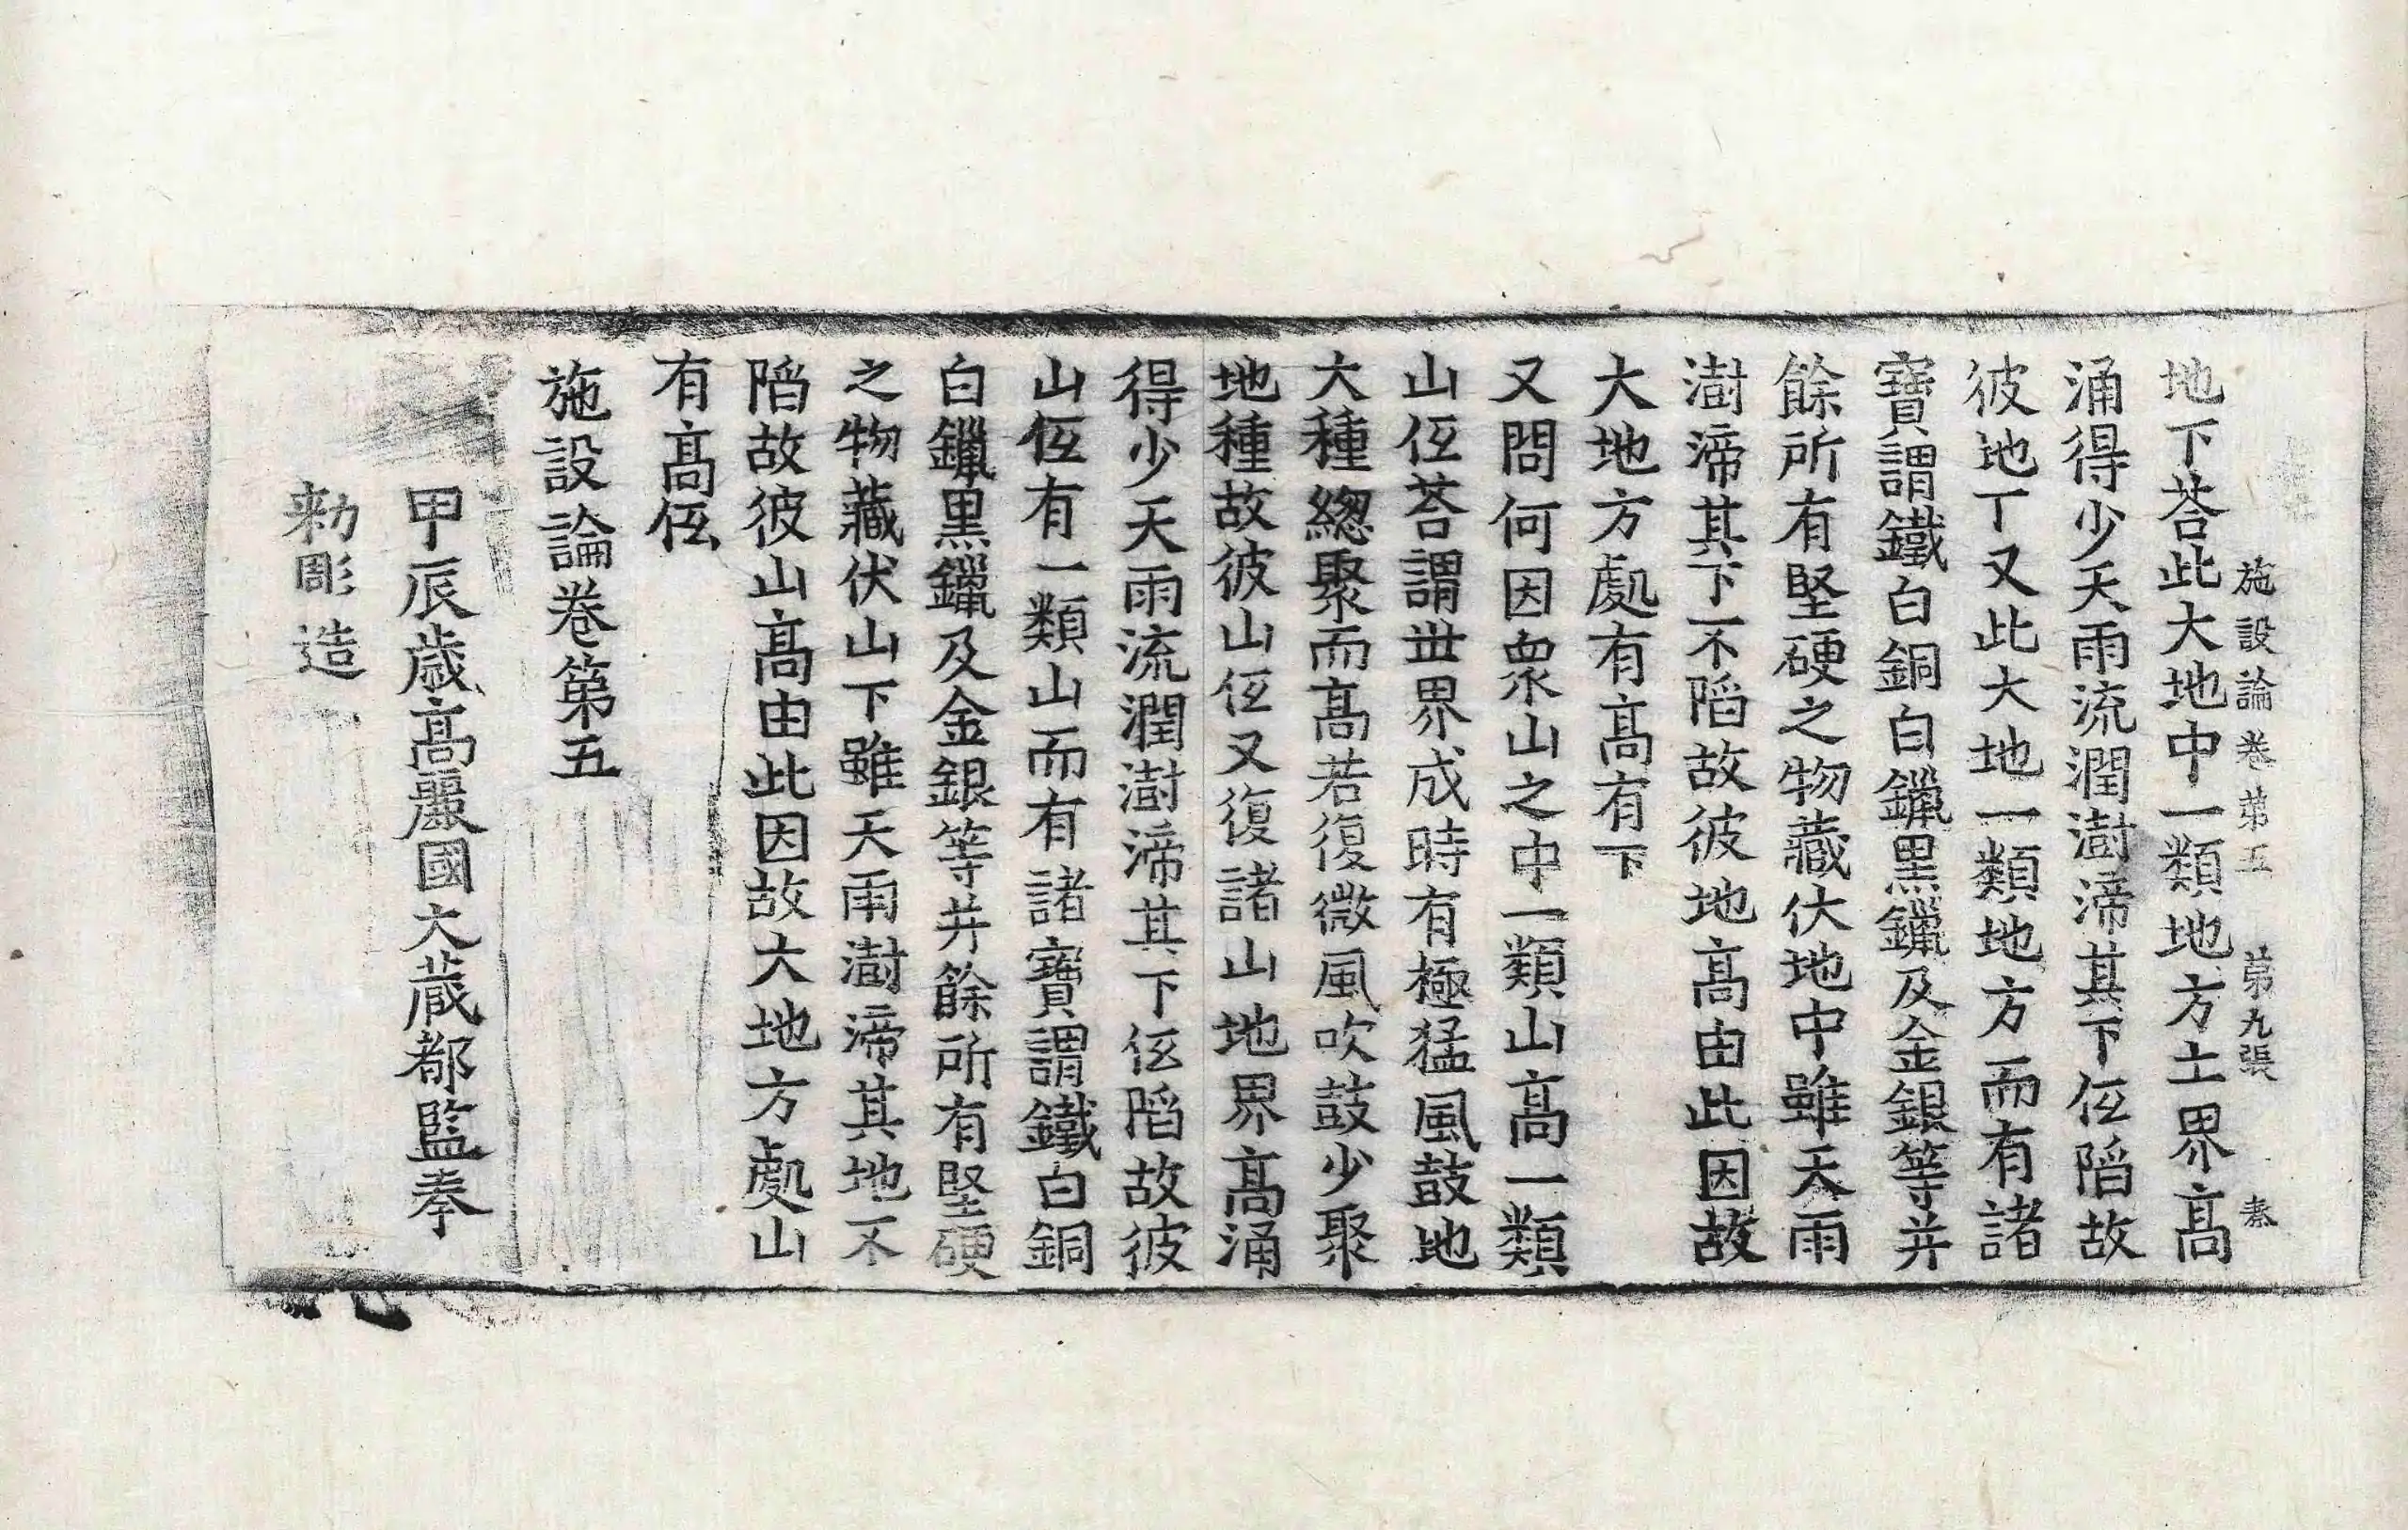 施設論卷第五 第九張 秦
地下荅此大地中一類地方土界髙
涌得少天雨流潤澍渧其下仾陷故
彼地丁又此大地一類地方而有諸
寶謂鐵白銅白鑞黒鑞及金銀等并
餘所有堅硬之物藏伏地中雖天雨
澍渧其下不陷故彼地髙由此因故
大地方處有髙有下
又問何因衆山之中一類山髙一類
山仾荅謂丗界成時有極猛風鼓地
大種緫聚而髙若復微風吹鼓少聚
地種故彼山仾又復諸山地界髙涌
得少天雨流潤澍渧其下仾陷故彼
山仾有一類山而有諸寶謂鐵白銅
白鑞黒鑞及金銀等并餘所有堅硬
之物藏伏山下雖天雨澍渧其地不
陷故彼山髙由此因故大地方處山
有髙仾
施設論卷第五
甲辰歳髙麗國大藏都監奉
勑彫造